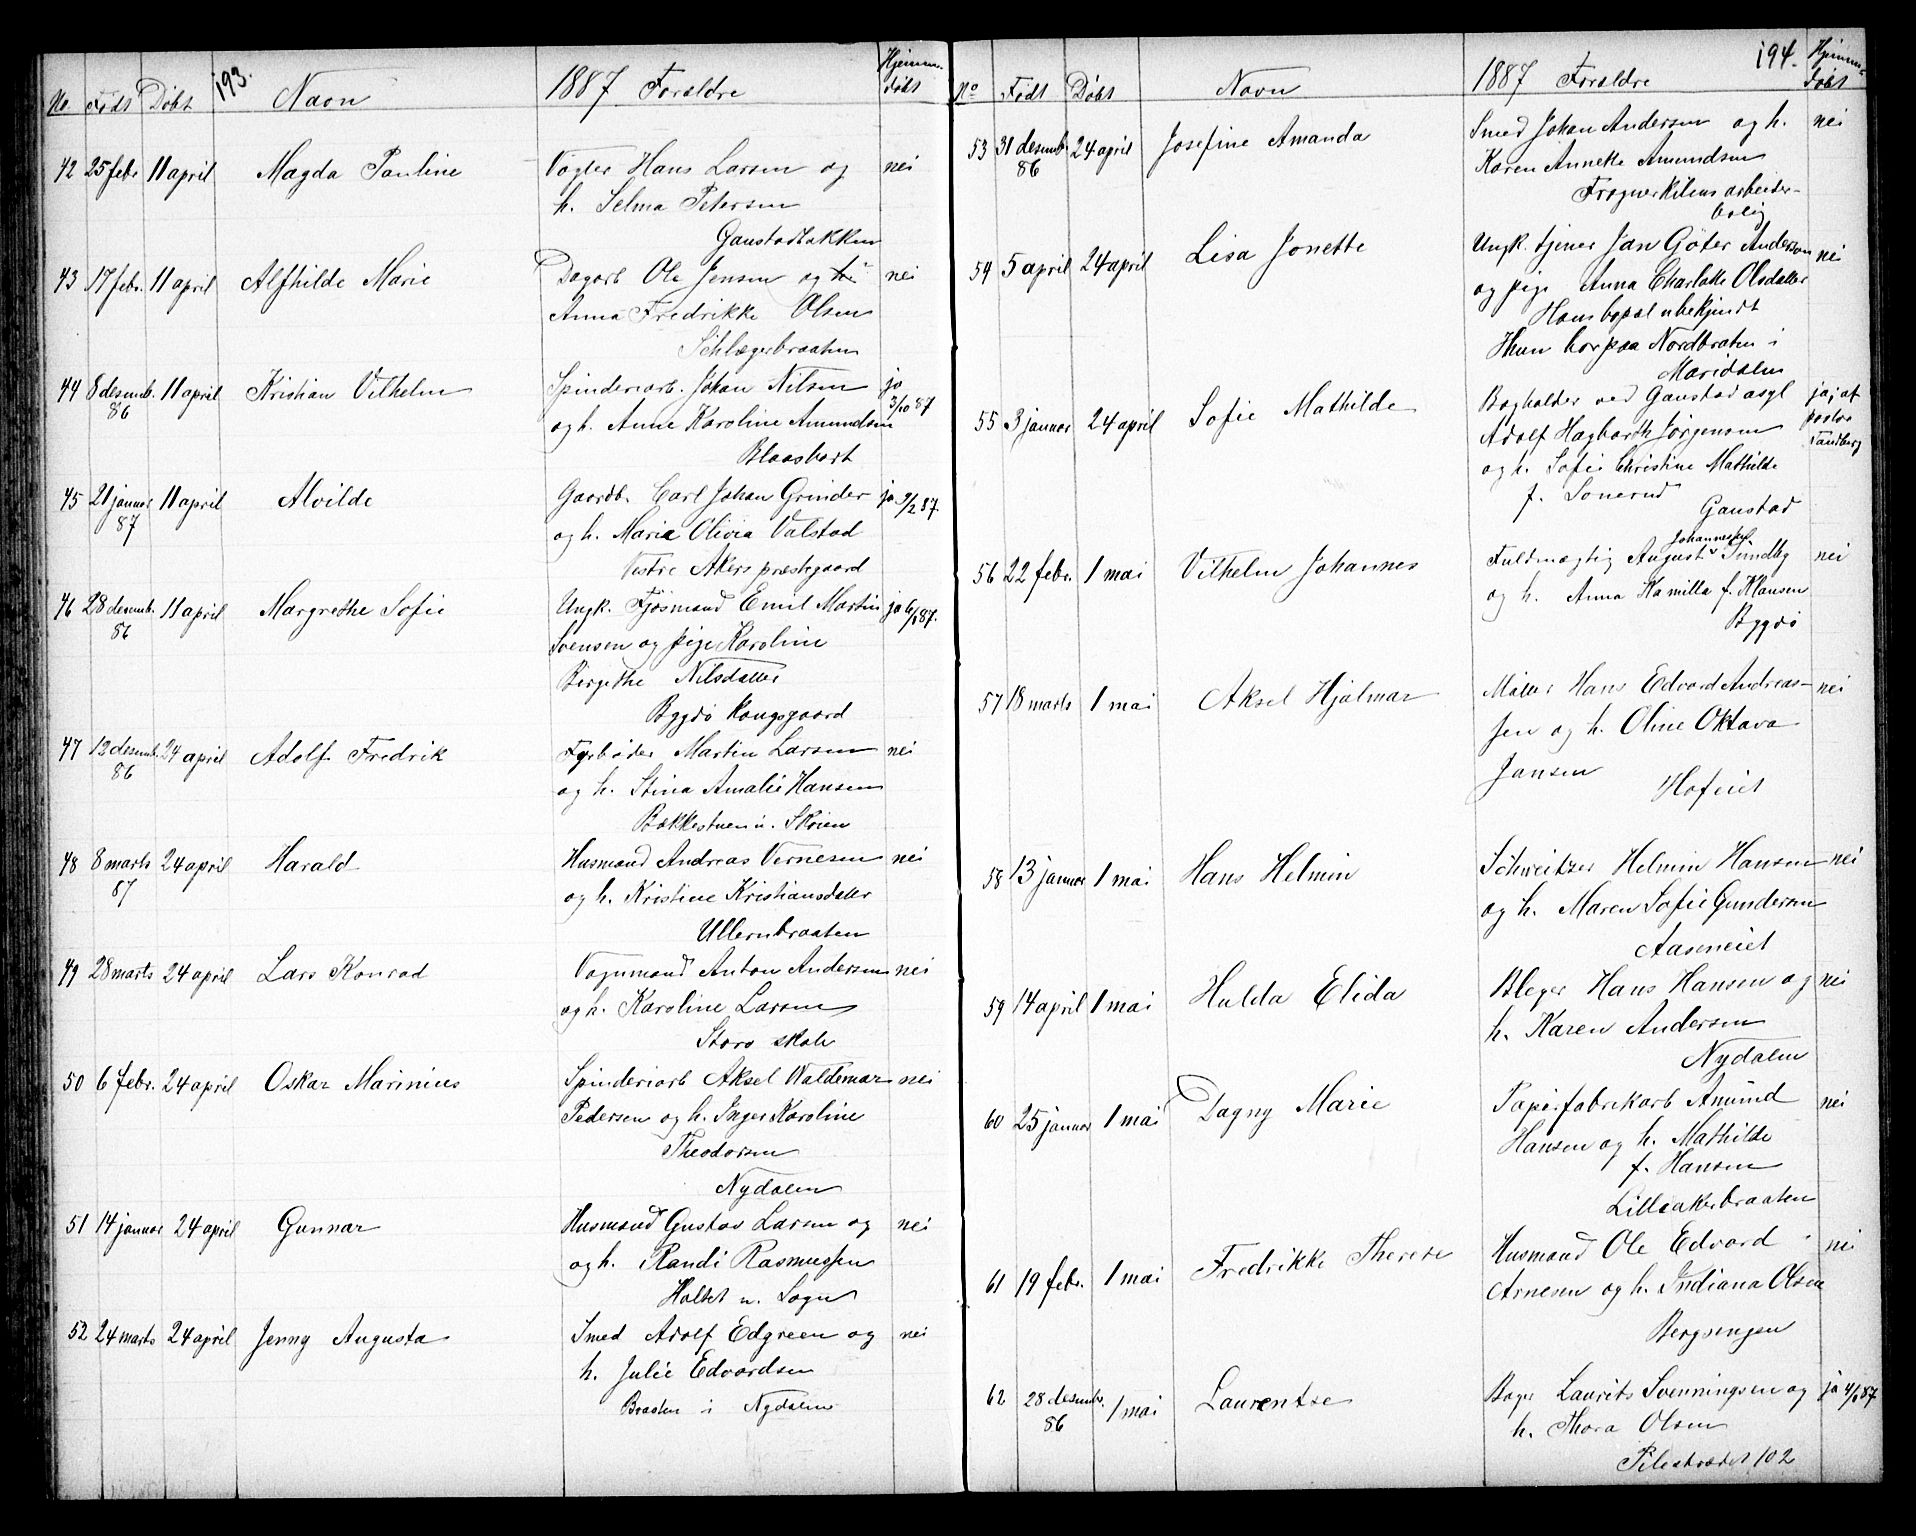 193.
No Født Døbt Navn 1887 Forældre Hjemme-
døbt
42 25 febr 11 april Magda Pauline Vogter Hans Larsen og nei
h. Selma Petersen
Gaustadbakken
43 17 febr. 11 april Alfhilde Marie Dagarb Ole Jensen og nei
Anna Fredrikke Olsen
Schlægerbraaten
44 8 desemb. 11 april Kristian Vilhelm Spinderiarb. Johan Nilsen ja
86 og h. Anne Karoline Amundsen 3/10 87
Blaasbort
45 21 januar 11 april Alvilde Gaardb. Carl Johan Grinder ja 9/2 87.
87 og h. Marie Olivia Valstad
Vestre Akers præstegaard
46 28 desemb. 11 april Margrethe Sofie Ungk. Fjøsmand Emil Martin ja 6/1 87.
86 Svensen og pige Karoline
Bergithe Nilsdatter
Bygdø Kongsgaard
47 12 desemb. 24 april Adolf Fredrik Fyrbøder Martin Larsen nei
86 og h. Stina Amalie Hansen
Bækkestuen u. Skøien
48 8 marts 24 april Harald Husmand Andreas Vernesen nei
87 og h. Kristine Kristiansdatter
Ullernbraaten
49 28 marts 24 april Lars Konrad Vognmand Anton Andersen nei
og h. Karoline Larsen
Storo skole
50 6 febr. 24 april Oskar Marinius Spinderiarb Aksel Valdemar nei
Pedersen og h. Inger Karoline
Theodorsen
Nydalen
51 14 januar 24 april Gunnar Husmand Gustav Larsen og nei
og h. Randi Rasmussen
Holtet u. Sogn
52 24 marts 24 april Jenny Augusta Smed Adolf Edgreen og nei
h. Julie Edvardsen
Braaten i Nydalen
194.
No Født Døbt Navn 1887 Forældre Hjemme-
døbt
53 31 desemb. 24 april Josefine Amanda Smed Johan Andersen og h. nei
86 Karen Annette Amundsen
Frognerkilens arbeider-
bolig
54 5 april 24 april Lisa Jonette Ungk. tjener Jan Göter Anderson nei
og pige Anna Charlotte Olsdatter
Hans bopæl ubekjendt
Hun bor paa Nordbraten i
Maridalen
55 3 januar 24 april Sofie Mathilde Bogholder ved Gaustad asyl ja, af
Adolf Hagbarth Jørgensen pastor
og h. Sofie Christine Mathilde Tandberg
f. Sonerud
Gaustad
Johannes
56 22 febr. 1 mai Vilhelm Johannes Fuldmægtig August Sundby nei
og h. Anna Kamilla f. Klausen
Bygdø
57 18 marts 1 mai Aksel Hjalmar Maler Hans Edvard Andreas- nei
sen og h. Oline Oktava
Jansen
Hofeiet
58 13 januar 1 mai Hans Helmin Schweitzer Helmin Hansen nei
og h. Maren Sofie Gundersen
Aaseneiet
59 14 april 1 mai Hulda Elida Bleger Hans Hansen og nei
h. Karen Andersen
Nydalen
60 25 januar 1 mai Dagny Marie Papirfabrikarb Amund nei
Hansen og h. Mathilde
f. Hansen
Lilleakerbraaten
61 19 febr. 1 mai Fredrikke Therese Husmand Ole Edvard nei
Arnesen og h. Indiana Olsen
Bergsengen
62 28 desembr. 1 mai Laurentse Bager Laurits Svenningsen og ja 4/1 87.
86 h. Thora Olsen
Pilestrædet 102